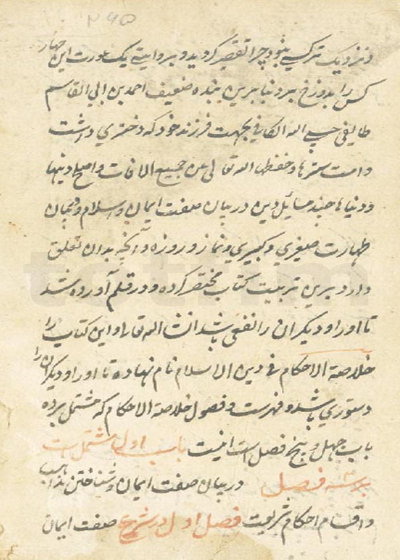 کس را بدوزخ برد بنابرین بنده ضعیف احمد بن ابی القاسم
بجهت فرزند خود که دختری داشت
وحفظها الله تعالی من جمیع الافات واصلح دینها
ودنیاها چند مسایل دین در بیان صفت ایمان واسلام و
طهارت صغیری وکبیری ونماز وروزه وآنچه بدان تعلق
دارد برین تربیت کتاب مختصر کرده ودر قلم آورده شد
تا او را ودیگران را نفعی باشد انشا الله تعالی واین کتاب را
خلاصة الاحکام فی دین الاسلام نام نهاده تا او را ودیگران را
دستوری باشد وفهرست وفصول خلاصة الاحکام که مشتمل برده
باب چهل وپنج فصل است اینست باب اول مشتمل است
فصل در بیان صفت ایمان وشناختن مذاهب
واقسام احکام شریعت فصل اول در شرح صفت ایمان